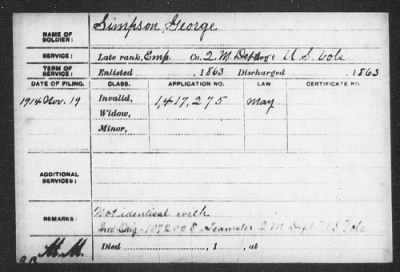 NAME OF SOLDIER: Simpson, George
SERVICE: Late rank, Emp. Co. Q. M. Dept Reg't U.S. Vols.
TERM OF SERVICE: Enlisted , 1863 Discharged , 1863
DATE OF FILING. CLASS. APPLICATION NO. LAW CERTIFICATE NO.
1914 Nov. 19 Invalid, 1,417,275 May
Widow,
Minor,
ADDITIONAL SERVICES:
REMARKS: Not identical with
Inv Orig 1072008 Teamster Q M Dept U S Vols
Died , 1 , at